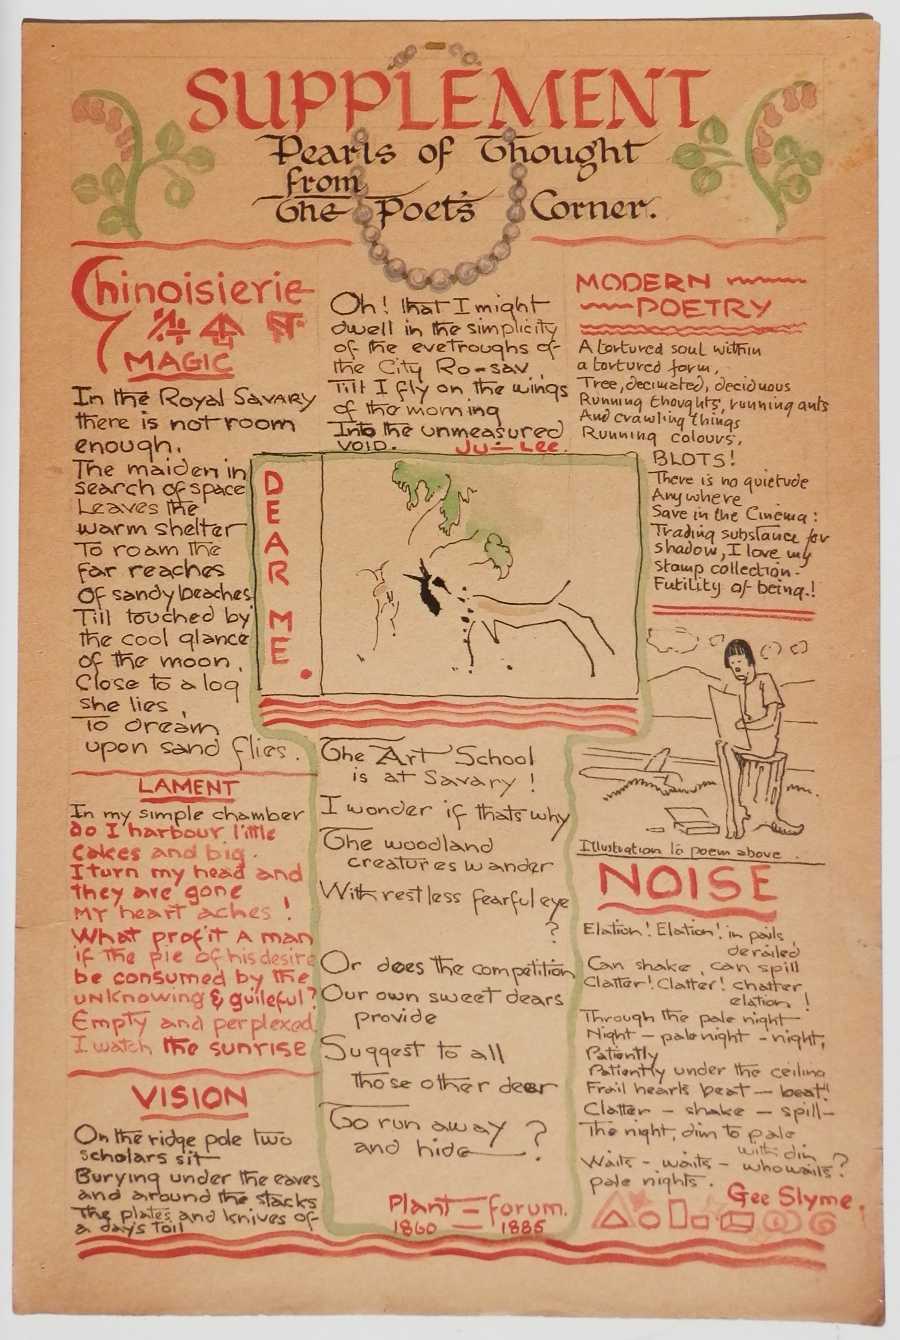 SUPPLEMENT
Pearls of Thought
from
The Poet's Corner.
Chinoisierie
MAGIC
In the Royal Savary
there is not room
enough.
The maiden in
search of space
Leaves the
warm shelter
To roam the
far reaches
Of sandy beaches
Till touched by
the cool glance
of the moon,
Close to a log
she lies,
To dream
upon sand flies.
LAMENT
In my simple chamber
do I harbour little
cakes and big.
I turn my head and
they are gone
My heart aches!
What profit A man
if the pie of his desire
be consumed by the
unknowing & guileful?
Empty and perplexed
I watch the sunrise
VISION
On the ridge pole two
scholars sit
Burying under the eaves
and around the stacks
The plates and knives of
a days toil
Oh! that I might
dwell in the simplicity
of the evetroughs of
the City Ro-sav
Till I fly on the wings
of the morning
Into the unmeasured
VOID.
Ju-Lee.
DEAR ME.
The Art School
is at Savary!
I wonder if thats why
The woodland
creatures wander
With restless fearful eye
?
Or does the competition
Our own sweet dears
provide
Suggest to all
those other deer
To run away
and hide ?
Plant-Forum.
1860 — 1885
MODERN
POETRY
A tortured soul within
a tortured form,
Tree, decimated, deciduous
Running thoughts, running ants
And crawling things
Running colours,
BLOTS!
There is no quietude
Anywhere
Save in the Cinema:
Trading substance for
shadow, I love my
stamp collection-
Futility of being.!
Illustration to poem above.
NOISE
Elation! Elation! in pails
derailed
Can shake, can spill
Clatter! Clatter! chatter
elation!
Through the pale night
Night - pale night - night,
Patiently
Patiently under the ceiling
Frail hearts beat - beat!
Clatter - shake - spill-
The night, dim to pale
with din
Waits - waits - who waits?
pale nights.
Gee Slyme.